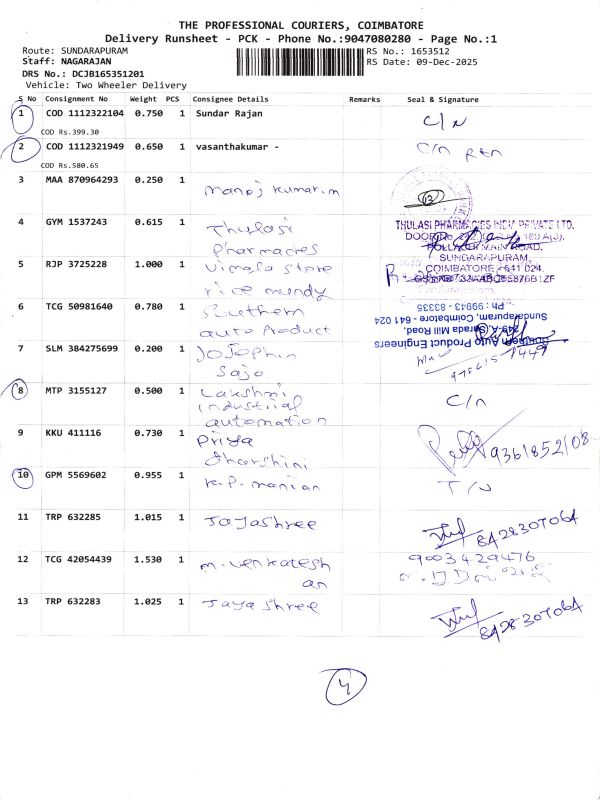 THE PROFESSIONAL COURIERS, COIMBATORE
Delivery Runsheet - PCK - Phone No.:9047080280 - Page No.:1
Route: SUNDARAPURAM
RS No.: 1653512
Staff: NAGARAJAN
RS Date: 09-Dec-2025
DRS No.: DCJB165351201
Vehicle: Two Wheeler Delivery
S No Consignment No Weight PCS Consignee Details Remarks Seal & Signature
1 COD 1112322104 0.750 1 Sundar Rajan C/N
COD Rs.399.30
2 COD 1112321949 0.650 1 vasanthakumar - C/n
COD Rs.580.65
3 MAA 870964293 0.250 1 Manoj kumar.m
4 GYM 1537243 0.615 1 Thulasi
pharmacies
THULASI PHARMACIES INDIA PRIVATE LTD.
SUNDARAPURAM,
COIMBATORE - 641 024.
5 RJP 3725228 1.000 1 Vimala store
rice mundy
6 TCG 50981640 0.780 1 Southern
auto product
Southern Auto Product Engineers
Sarada Mill Road,
Sundarapuram, Coimbatore - 641 024
Ph : 99943 - 83335
7 SLM 384275699 0.200 1 Jojophin
Sajo
8 MTP 3155127 0.500 1 Lakshmi
industrial
automation
C/n
9 KKU 411116 0.730 1 Priya
dharshini
9361852108
10 GPM 5569602 0.955 1 K.P. manian
11 TRP 632285 1.015 1 Jayashree
8428307064
12 TCG 42054439 1.530 1 m. venkatesh
an
9003429476
13 TRP 632283 1.025 1 Jaya shree
8428307064
4